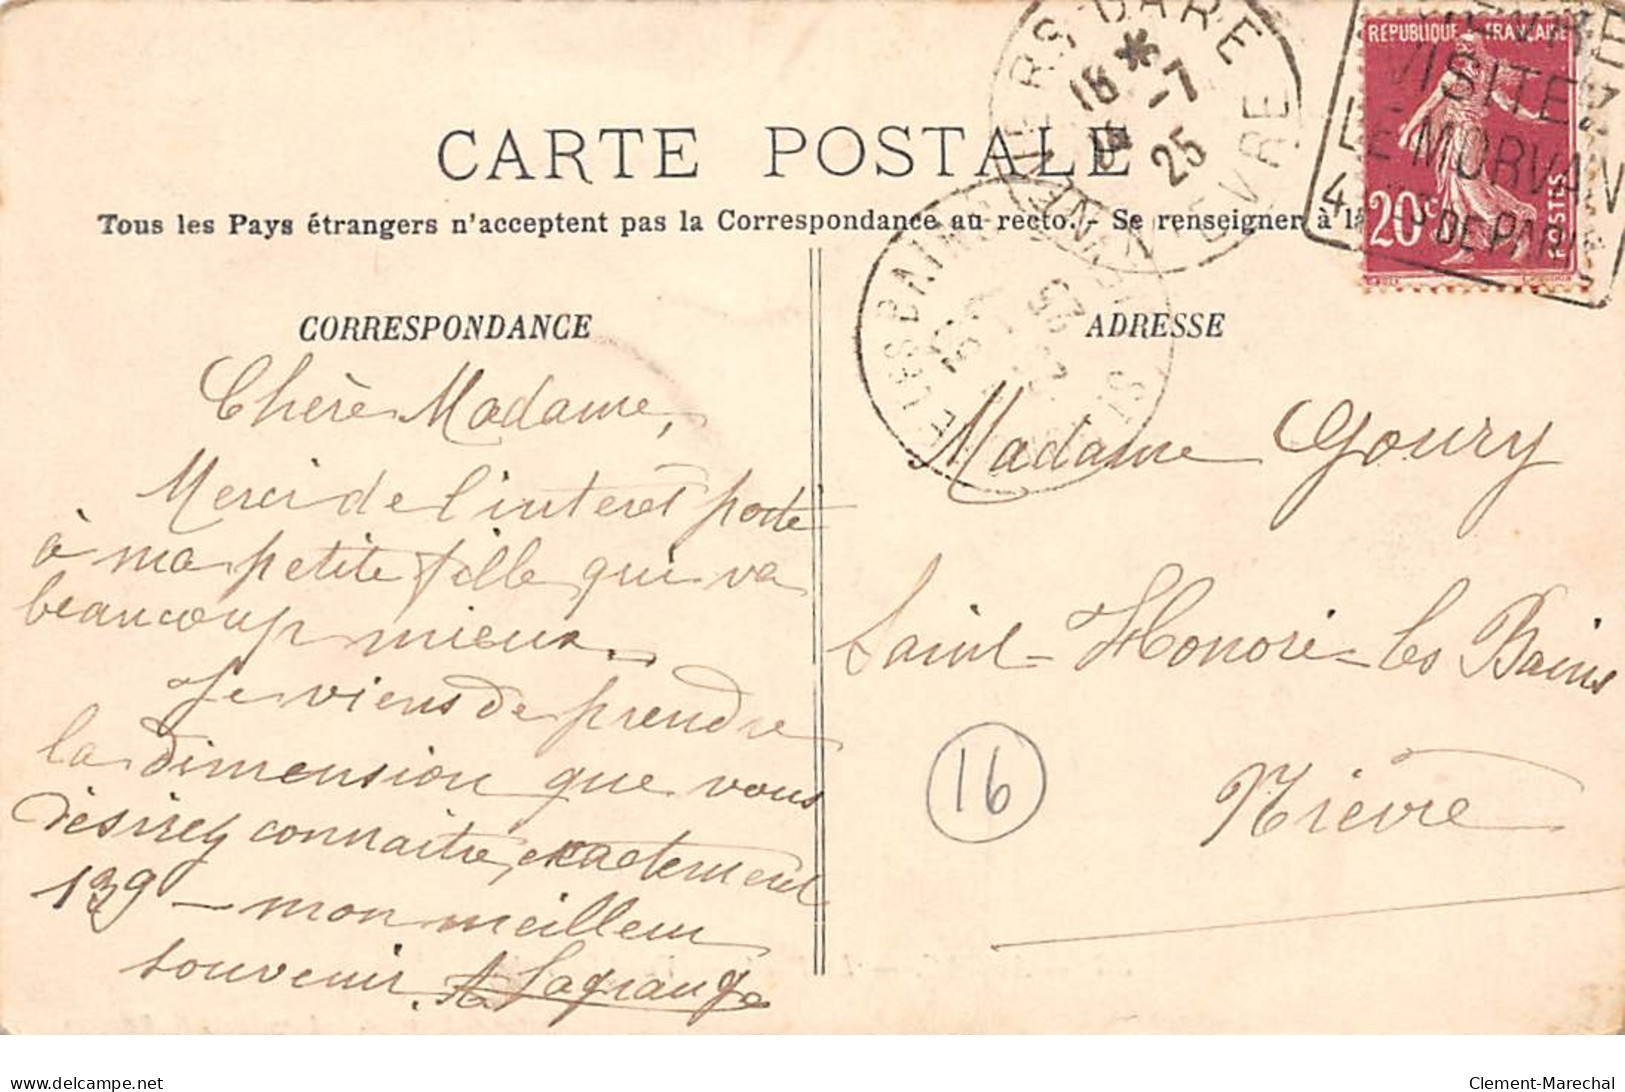 CARTE POSTALE
Tous les Pays étrangers n'acceptent pas la Correspondance au recto. - Se renseigner à la
CORRESPONDANCE
Chère Madame,
Merci de l'interet porté
à ma petite fille qui va
beaucoup mieux.
Je viens de prendre
la dimension que vous
désirez connaitre, exactement
139 - mon meilleur
souvenir. A Lagrange
ADRESSE
Madame Goury
Saint-Honoré-les Bains
Nièvre
16
18 * -7
25
NIÈVRE
REPUBLIQUE FRANÇAISE
20c
POSTES
VISITEZ
LE MORVAN
DE PARIS
delcampe.net
Clement-Marechal